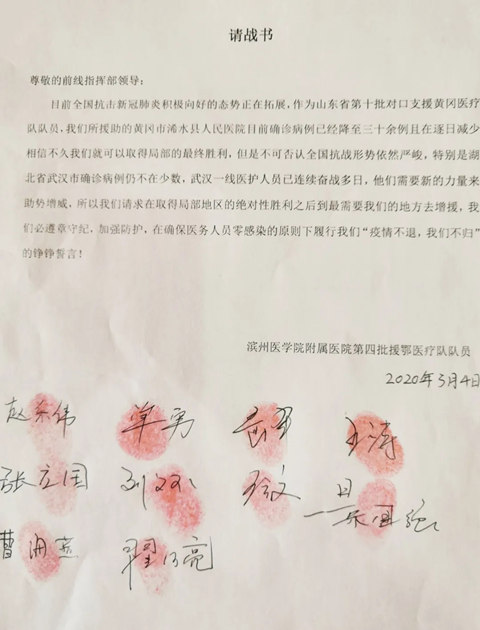 请战书
尊敬的前线指挥部领导：
目前全国抗击新冠肺炎积极向好的态势正在拓展，作为山东省第十批对口支援黄冈医疗
队队员，我们所援助的黄冈市浠水县人民医院目前确诊病例已经降至三十余例且在逐日减少
相信不久我们就可以取得局部的最终胜利，但是不可否认全国抗战形势依然严峻，特别是湖
北省武汉市确诊病例仍不在少数，武汉一线医护人员已连续奋战多日，他们需要新的力量来
助势增威，所以我们请求在取得局部地区的绝对性胜利之后到最需要我们的地方去增援，我
们必遵章守纪，加强防护，在确保医务人员零感染的原则下履行我们“疫情不退，我们不归”
的铮铮誓言！
滨州医学院附属医院第四批援鄂医疗队队员
2020年3月4日
赵东伟 单勇 王涛
张立国 刘双
曹 翟乃亮